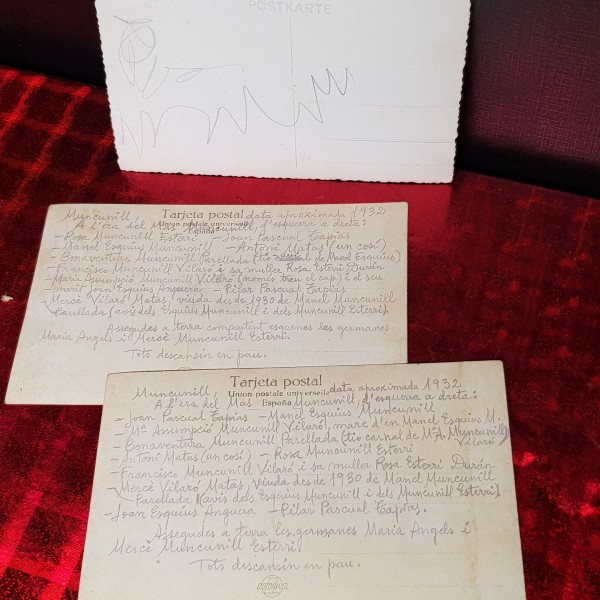 POSTKARTE
Muncunill, Tarjeta postal data aproximada 1932
Union postale universelle
España
A l'era del Mas Muncunill, d'esquerra a dreta:
- Rosa Muncunill Esterri - Joan Pascual Tapias
- Manel Esquius Muncunill - Antoni Matas (un cosí)
- Bonaventura Muncunill Parellada (tio carnal de Manel Esquius)
- Francisco Muncunill Vilaró i sa muller Rosa Esterri Durán
- Maria Assumpció Muncunill Vilaró (només treu el cap) i el seu
marit Joan Esquius Anguera - Pilar Pascual Tapias
- Mercè Vilaró Matas, viuda des de 1930 de Manel Muncunill
Parellada (avis dels Esquius Muncunill i dels Muncunill Esterri).
Assegudes a terra compartint esquenes les germanes
Maria Angels i Mercè Muncunill Esterri.
Tots descansin en pau.
Tarjeta postal
Muncunill, Union postale universelle data aproximada 1932
España
A l'era del Mas Muncunill, d'esquerra a dreta:
- Joan Pascual Tapias - Manel Esquius Muncunill
- Mª Assumpció Muncunill Vilaró, mare d'en Manel Esquius M.
- Bonaventura Muncunill Parellada (tio carnal de Mª A. Muncunill Vilaró)
- Antoni Matas (un cosí) - Rosa Muncunill Esterri
- Francisco Muncunill Vilaró i sa muller Rosa Esterri Durán
- Mercè Vilaró Matas, viuda des de 1930 de Manel Muncunill
Parellada (avis dels Esquius Muncunill i dels Muncunill Esterri).
- Joan Esquius Anguera - Pilar Pascual Tapias.
Assegudes a terra les germanes Maria Angels i
Mercè Muncunill Esterri.
Tots descansin en pau.